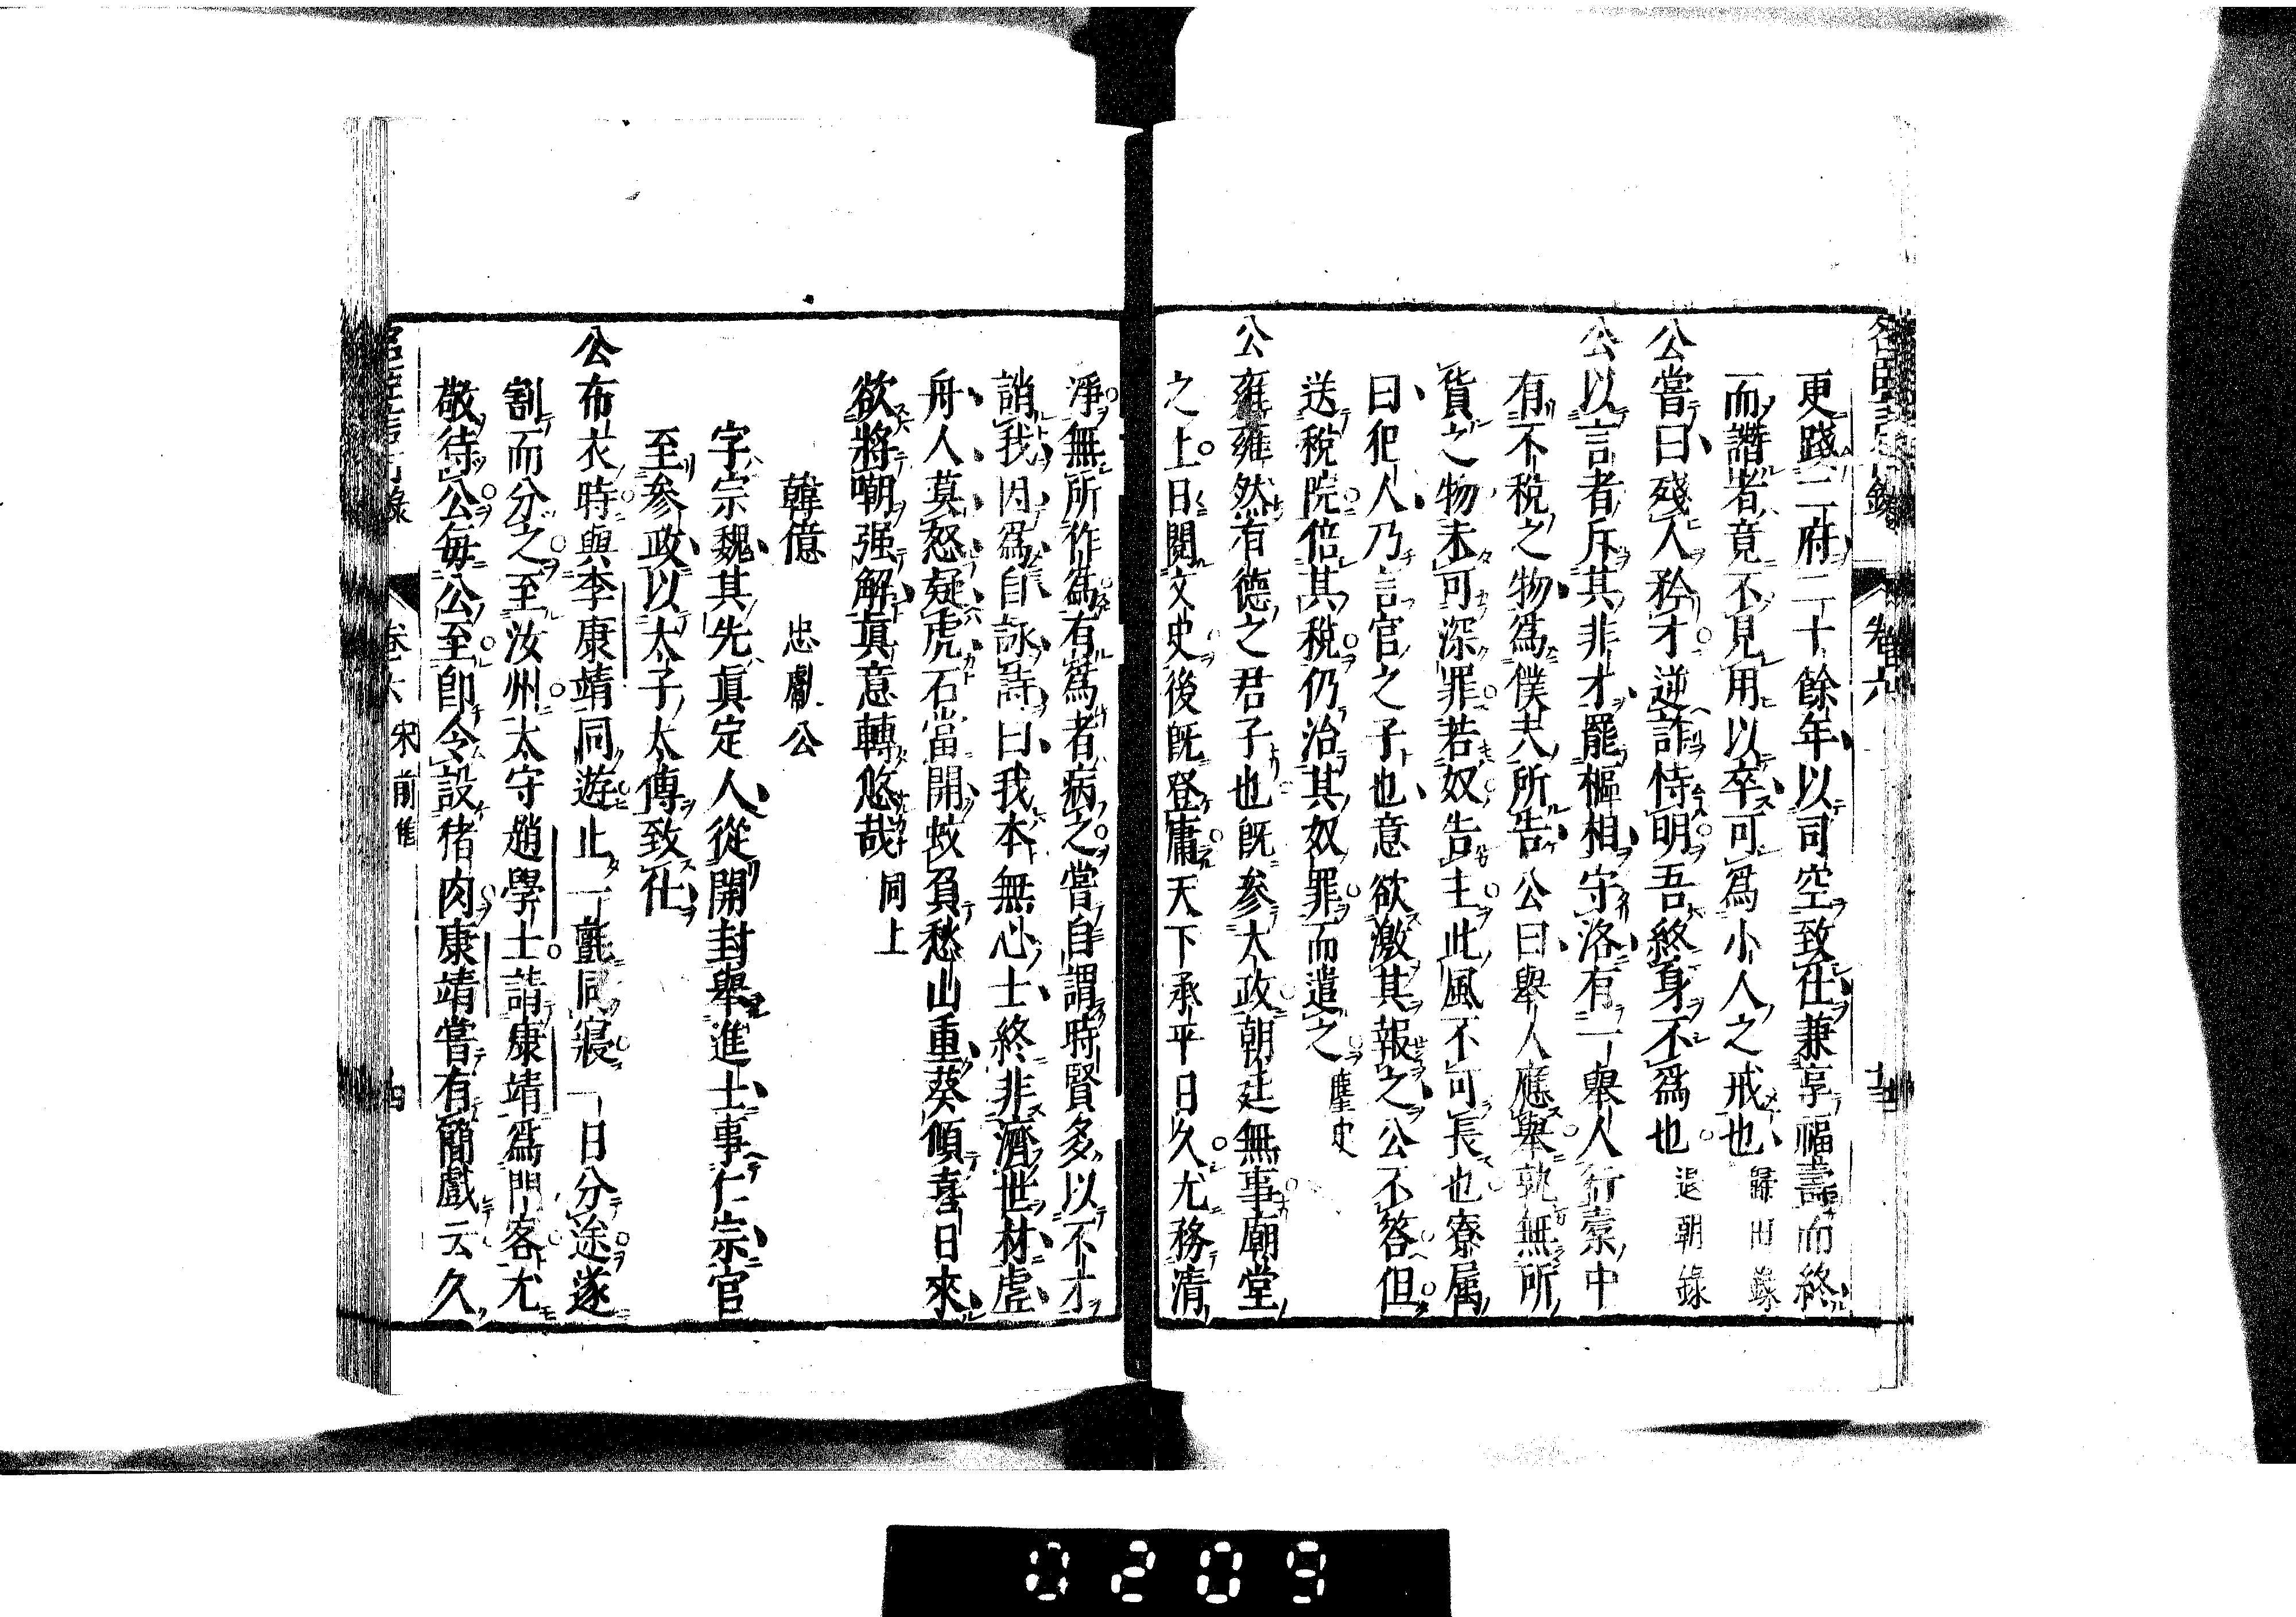 名臣言行錄 卷六 十四
更踐二府二十餘年以司空致仕兼享福壽而終
而譖者竟不見用以卒可爲小人之戒也 歸田錄
公嘗曰殘人矜才逆詐恃明吾終身不爲也 退朝錄
公以言者斥其非才罷樞相守洛有一舉人行橐中
有不稅之物爲僕夫所告公曰舉人應舉孰無所
貨之物未可深罪若奴告主此風不可長也寮属
曰犯人乃言官之子也意欲激其報之公不答但
送稅院倍其稅仍治其奴罪而遣之 麈史
公雍雍然有德之君子也既參大政朝廷無事廟堂
之上日閱文史後旣登庸天下承平日久尤務清
淨無所作爲有爲者病之嘗自謂時賢多以不才
誚我因爲自詠詩曰我本無心士終非濟世材虛
舟人莫怒疑虎石當開蚊負愁山重葵傾喜日來
欲將嘲强解真意轉悠哉 同上
韓億 忠獻公
字宗魏其先真定人從開封舉進士事仁宗官
至參政以太子太傅致仕
公布衣時與李康靖同遊止一氈同寢一日分途遂
割而分之至汝州太守趙學士請康靖爲門客尤
敬待公每公至卽令設猪肉康靖嘗有簡戲云久
名臣言行錄 卷六 宋前集 十四
0209